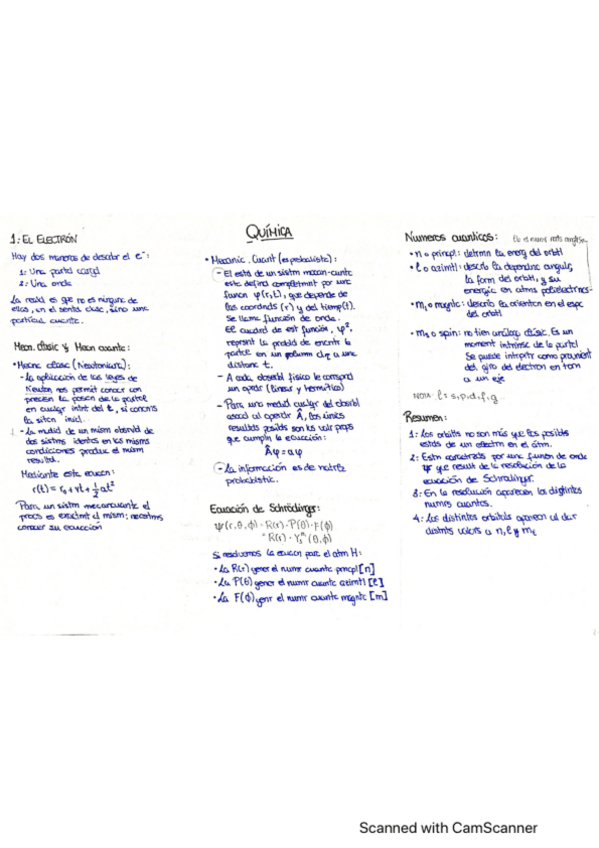 QUÍMICA
1: EL ELECTRÓN
Hay dos maneras de describir el e⁻:
1: Una partcl cargd
2: Una onda
La realid es qe no es ningunc de
ellas, en el sentid clasc, sino unc
particul cuantc.
Mecn. clasic y Mecn cuantc:
• Mecnc clasc (Newtoniana):
- La aplicación de las leyes de
Newton nos permit conocr con
precisn la posicn de la partcl
en cualqr intnt del t, si conocms
la sitcn inicl.
- La medid de un mism observbl de
dos sistms identcs en las mismas
condiciones produce el mism
resultd.
Mediante esta ecuacn:
r(t) = r₀ + vt + ½at²
Para un sistm mecanocuantc el
procs es exactmt el mism; necestms
conocer su ecuación
• Mecanic. Cuant (es probabilistc):
- El estd de un sistm mecan-cuantc
este defind completmnt por unc
funcn ψ(r,t), que depende de
las coordnds (r) y del tiemp(t).
Se llame función de onda.
El cuadrd de est función, ψ²,
represnt la probld de encntr la
partcl en un volumn dζ a una
distanc t.
- A cada observbl fisico le correspnd
un operdr (lineal y hermitico)
- Para una medid cualqr del observbl
asocd al operdr Â, los únics
resultds posibls son los valr props
que cumpln la ecuacion:
Âψ = aψ
- La información es de natrlz
probabilistic.
Ecuación de Schrödinger:
ψ(r,θ,ϕ) = R(r)·P(θ)·F(ϕ)
= R(r)·Yₗᵐ(θ,ϕ)
Si resolvemos la ecuacn para el atm H:
• La R(r) gener el numr cuantc princpl [n]
• La P(θ) gener el numr cuantc azimtl [ℓ]
• La F(ϕ) genr el numr cuantc magntc [m]
Números cuanticos:
• n o princpl: detrmn la energ del orbtl
• ℓ o azimtl: describ la dependnc angulr,
la form del orbitl, y su
energic en atms polielectrncs
• mₗ o magntc: describ la orientcn en el espc
del orbtl
• mₛ o spin: no tien análogo clásic. Es un
moment intrinsc de la partcl
Se puede intrprtr como provnient
del giro del electron en torn
a un eje
NOTA: ℓ = s, p, d, f, g...
Resumen:
1: Los orbitls no son más qe los posibls
estds de un electrn en el átm.
2: Estn carcterztds por unc funcn de onda
ψ qe result de la resolución de la
ecuación de Schrodinger.
3: En la resolución aparecen los distintos
numrs cuantcs.
4: Los distintos orbitals aparecn al dar
distnts valors a n, ℓ y mₗ
Scanned with CamScanner